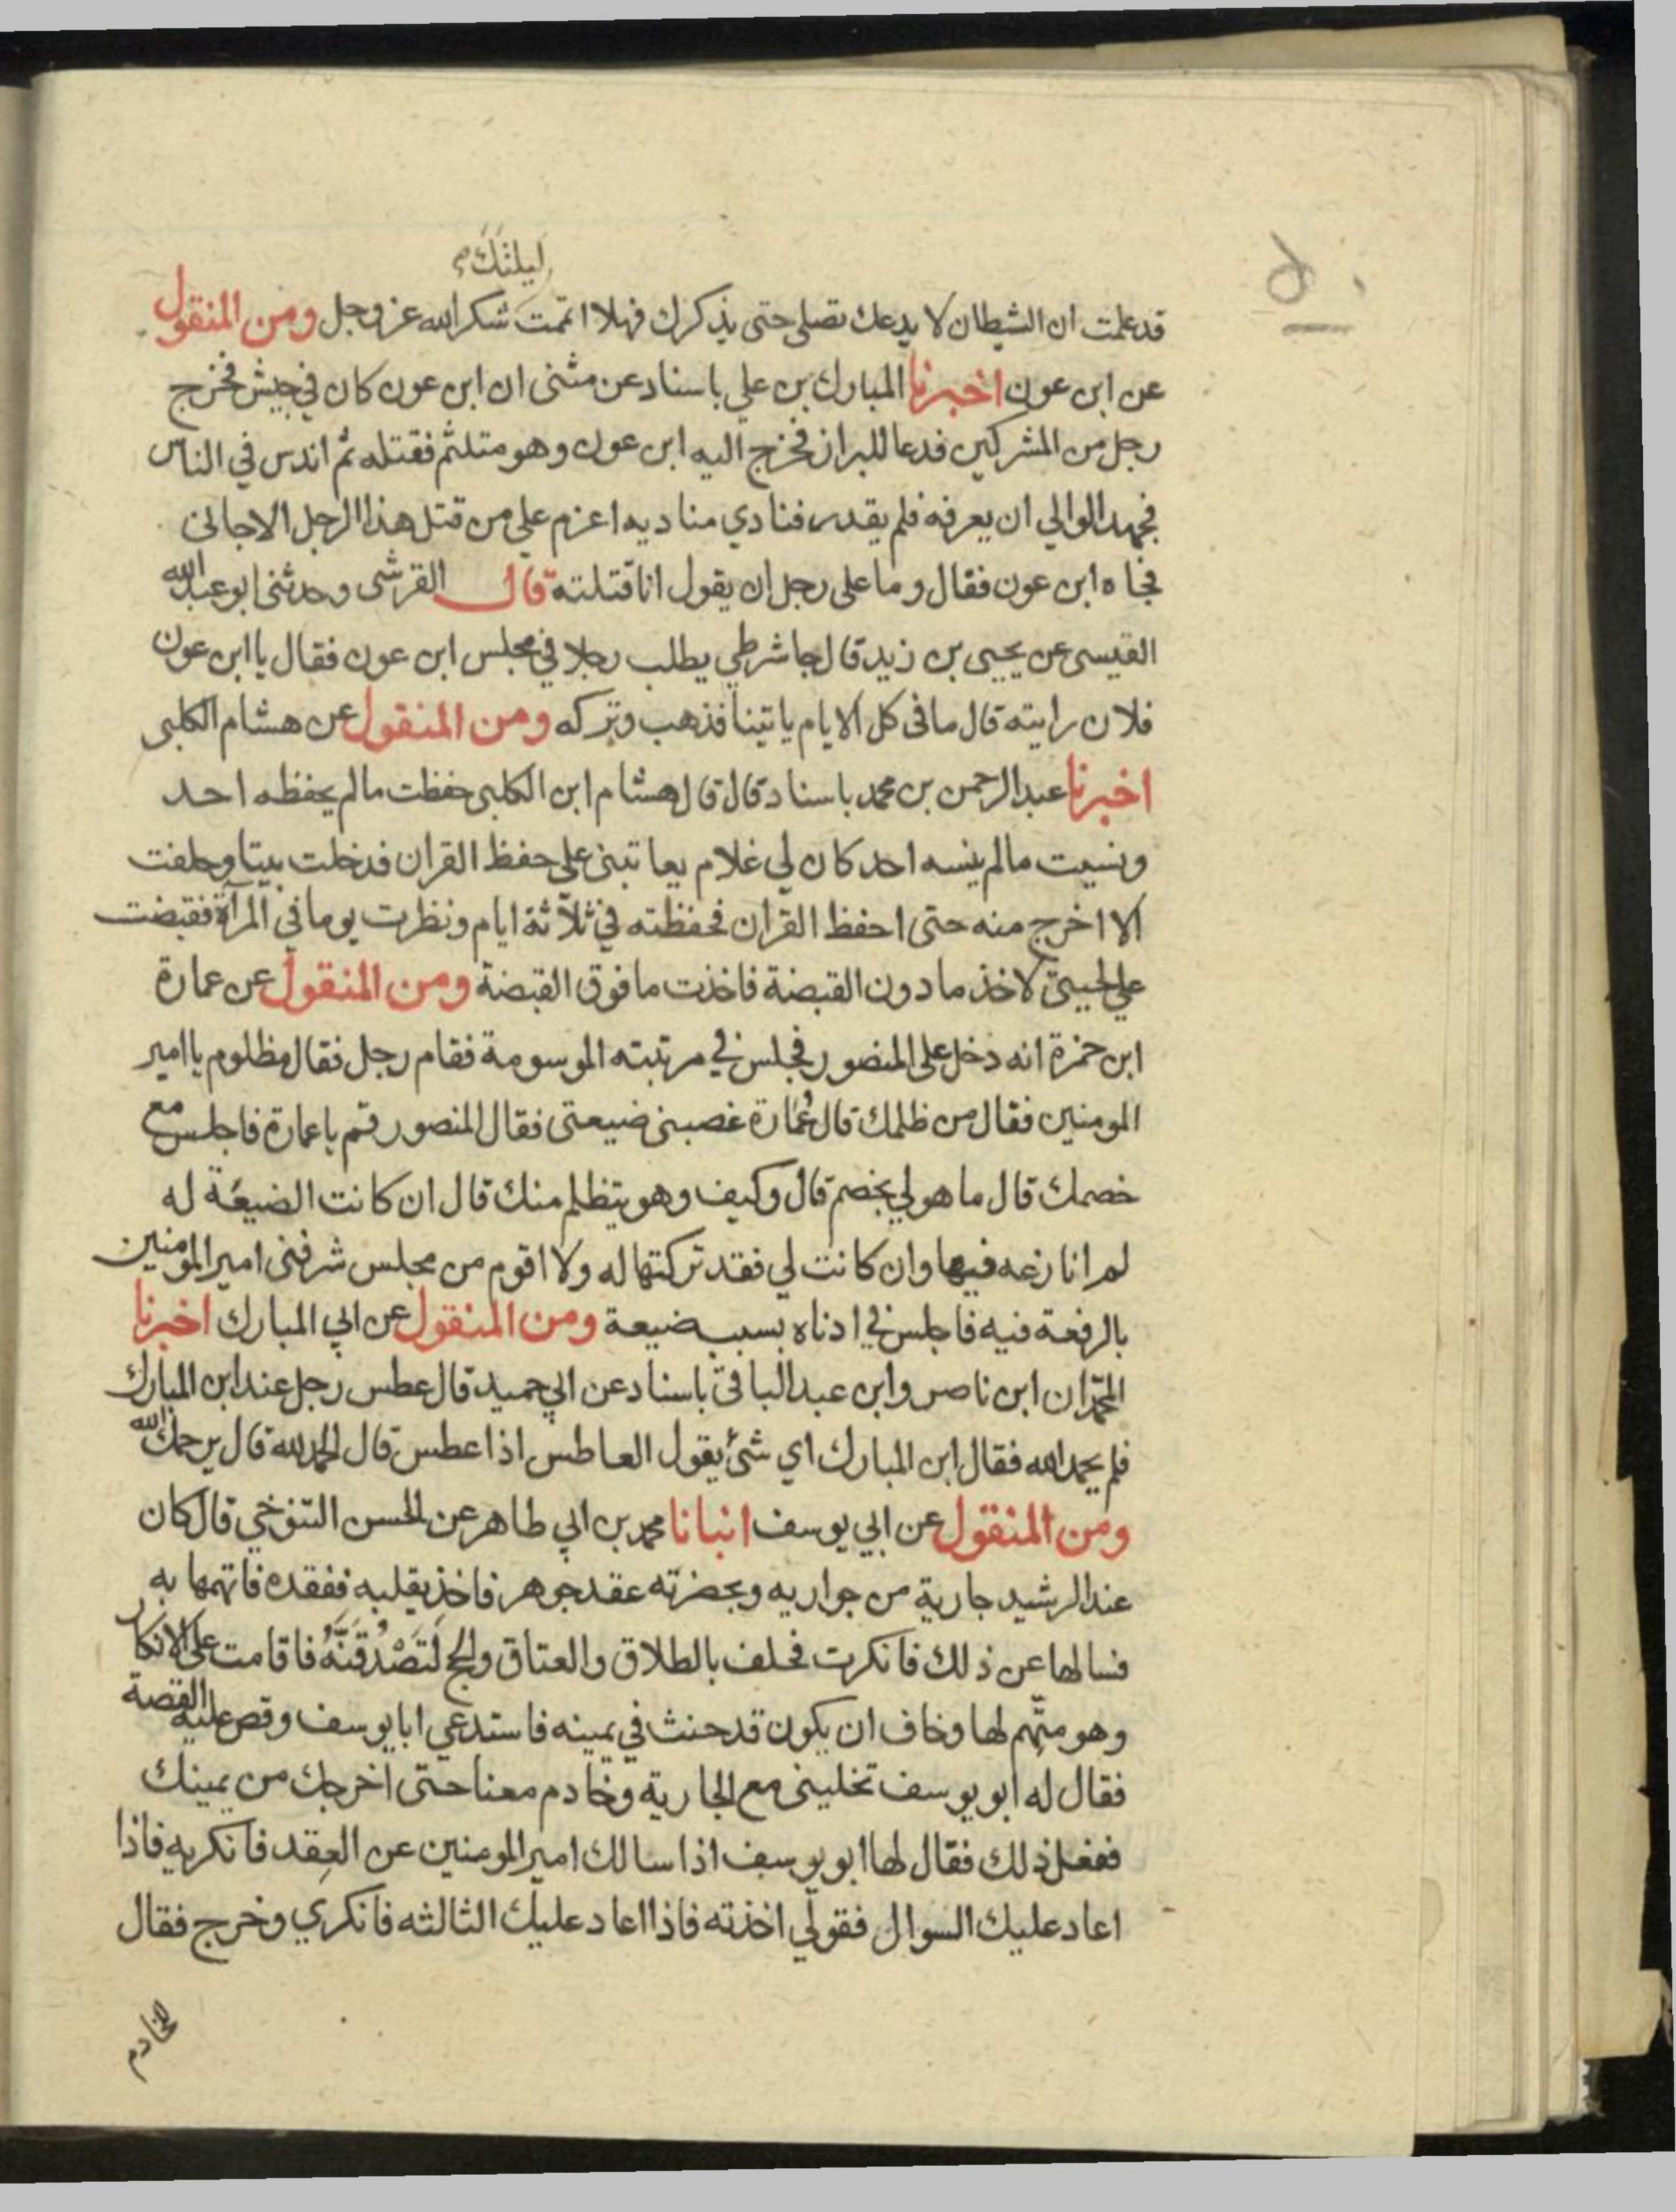 ليلتك
قد علمت ان الشيطان لا يدعك تصلي حتى يذكرك فهلا اتممت شكرا لله عز وجل ومن المنقول
عن ابن عون اخبرنا المبارك بن علي باسناد عن مثنى ان ابن عون كان في جيش فخرج
رجل من المشركين فدعا للبراز فخرج اليه ابن عون وهو متلثم فقتله ثم اندس في الناس
فجهد الوالي ان يعرفه فلم يقدر فنادي مناديه اعزم علي من قتل هذا الرجل الا جاني
فجاه ابن عون فقال وما على رجل ان يقول انا قتلته قال القرشي وحدثني ابو عبد الله
القيسي عن يحيى بن زيد قال جا شرطي يطلب رجلا في مجلس ابن عون فقال يا ابن عون
فلان رايته قال ما في كل الايام ياتينا فذهب وتركه ومن المنقول عن هشام الكلبي
اخبرنا عبد الرحمن بن محمد باسناد قال قال هشام ابن الكلبي حفظت ما لم يحفظه احد
ونسيت ما لم ينسه احد كان لي غلام يعاتبني على حفظ القران فدخلت بيتا وحلفت
الا اخرج منه حتى احفظ القران فحفظته في ثلاثة ايام ونظرت يوما في المرآة فقبضت
علي لحيتي لاخذ ما دون القبضة فاخذت ما فوق القبضة ومن المنقول عن عمارة
ابن حمزة انه دخل على المنصور فجلس في مرتبته الموسومة فقام رجل فقال مظلوم يا امير
المومنين فقال من ظلمك قال عُمارة غصبني ضيعتي فقال المنصور قم يا عمارة فاجلس مع
خصمك قال ما هو لي بخصم قال وكيف وهو يتظلم منك قال ان كانت الضيعة له
لم انازعه فيها وان كانت لي فقد تركتها له ولا اقوم من مجلس شرفني امير المومنين
بالرفعة فيه فاجلس في ادناه بسبب ضيعة ومن المنقول عن ابي المبارك اخبرنا
المحمدان ابن ناصر وابن عبد الباقي باسناد عن ابي حميد قال عطس رجل عند ابن المبارك
فلم يحمد الله فقال ابن المبارك اي شئ يقول العاطس اذا عطس قال الحمد لله قال يرحمك الله
ومن المنقول عن ابي يوسف انبانا محمد بن ابي طاهر عن الحسن التنوخي قال كان
عند الرشيد جارية من جواريه وبحضرته عقد جوهر فاخذ يقلبه ففقده فاتهمها به
فسالها عن ذلك فانكرت فحلف بالطلاق والعتاق والحج لَتَصْدُقَنَّهُ فاقامت على الانكار
وهو متهم لها وخاف ان يكون قد حنث في يمينه فاستدعي ابا يوسف وقص عليه القصة
فقال له ابو يوسف تخليني مع الجارية وخادم معنا حتى اخرجك من يمينك
ففعل ذلك فقال لها ابو يوسف اذا سالك امير المومنين عن العقد فانكريه فاذا
اعاد عليك السوال فقولي اخذته فاذا اعاد عليك الثالثه فانكري وخرج فقال
الخادم